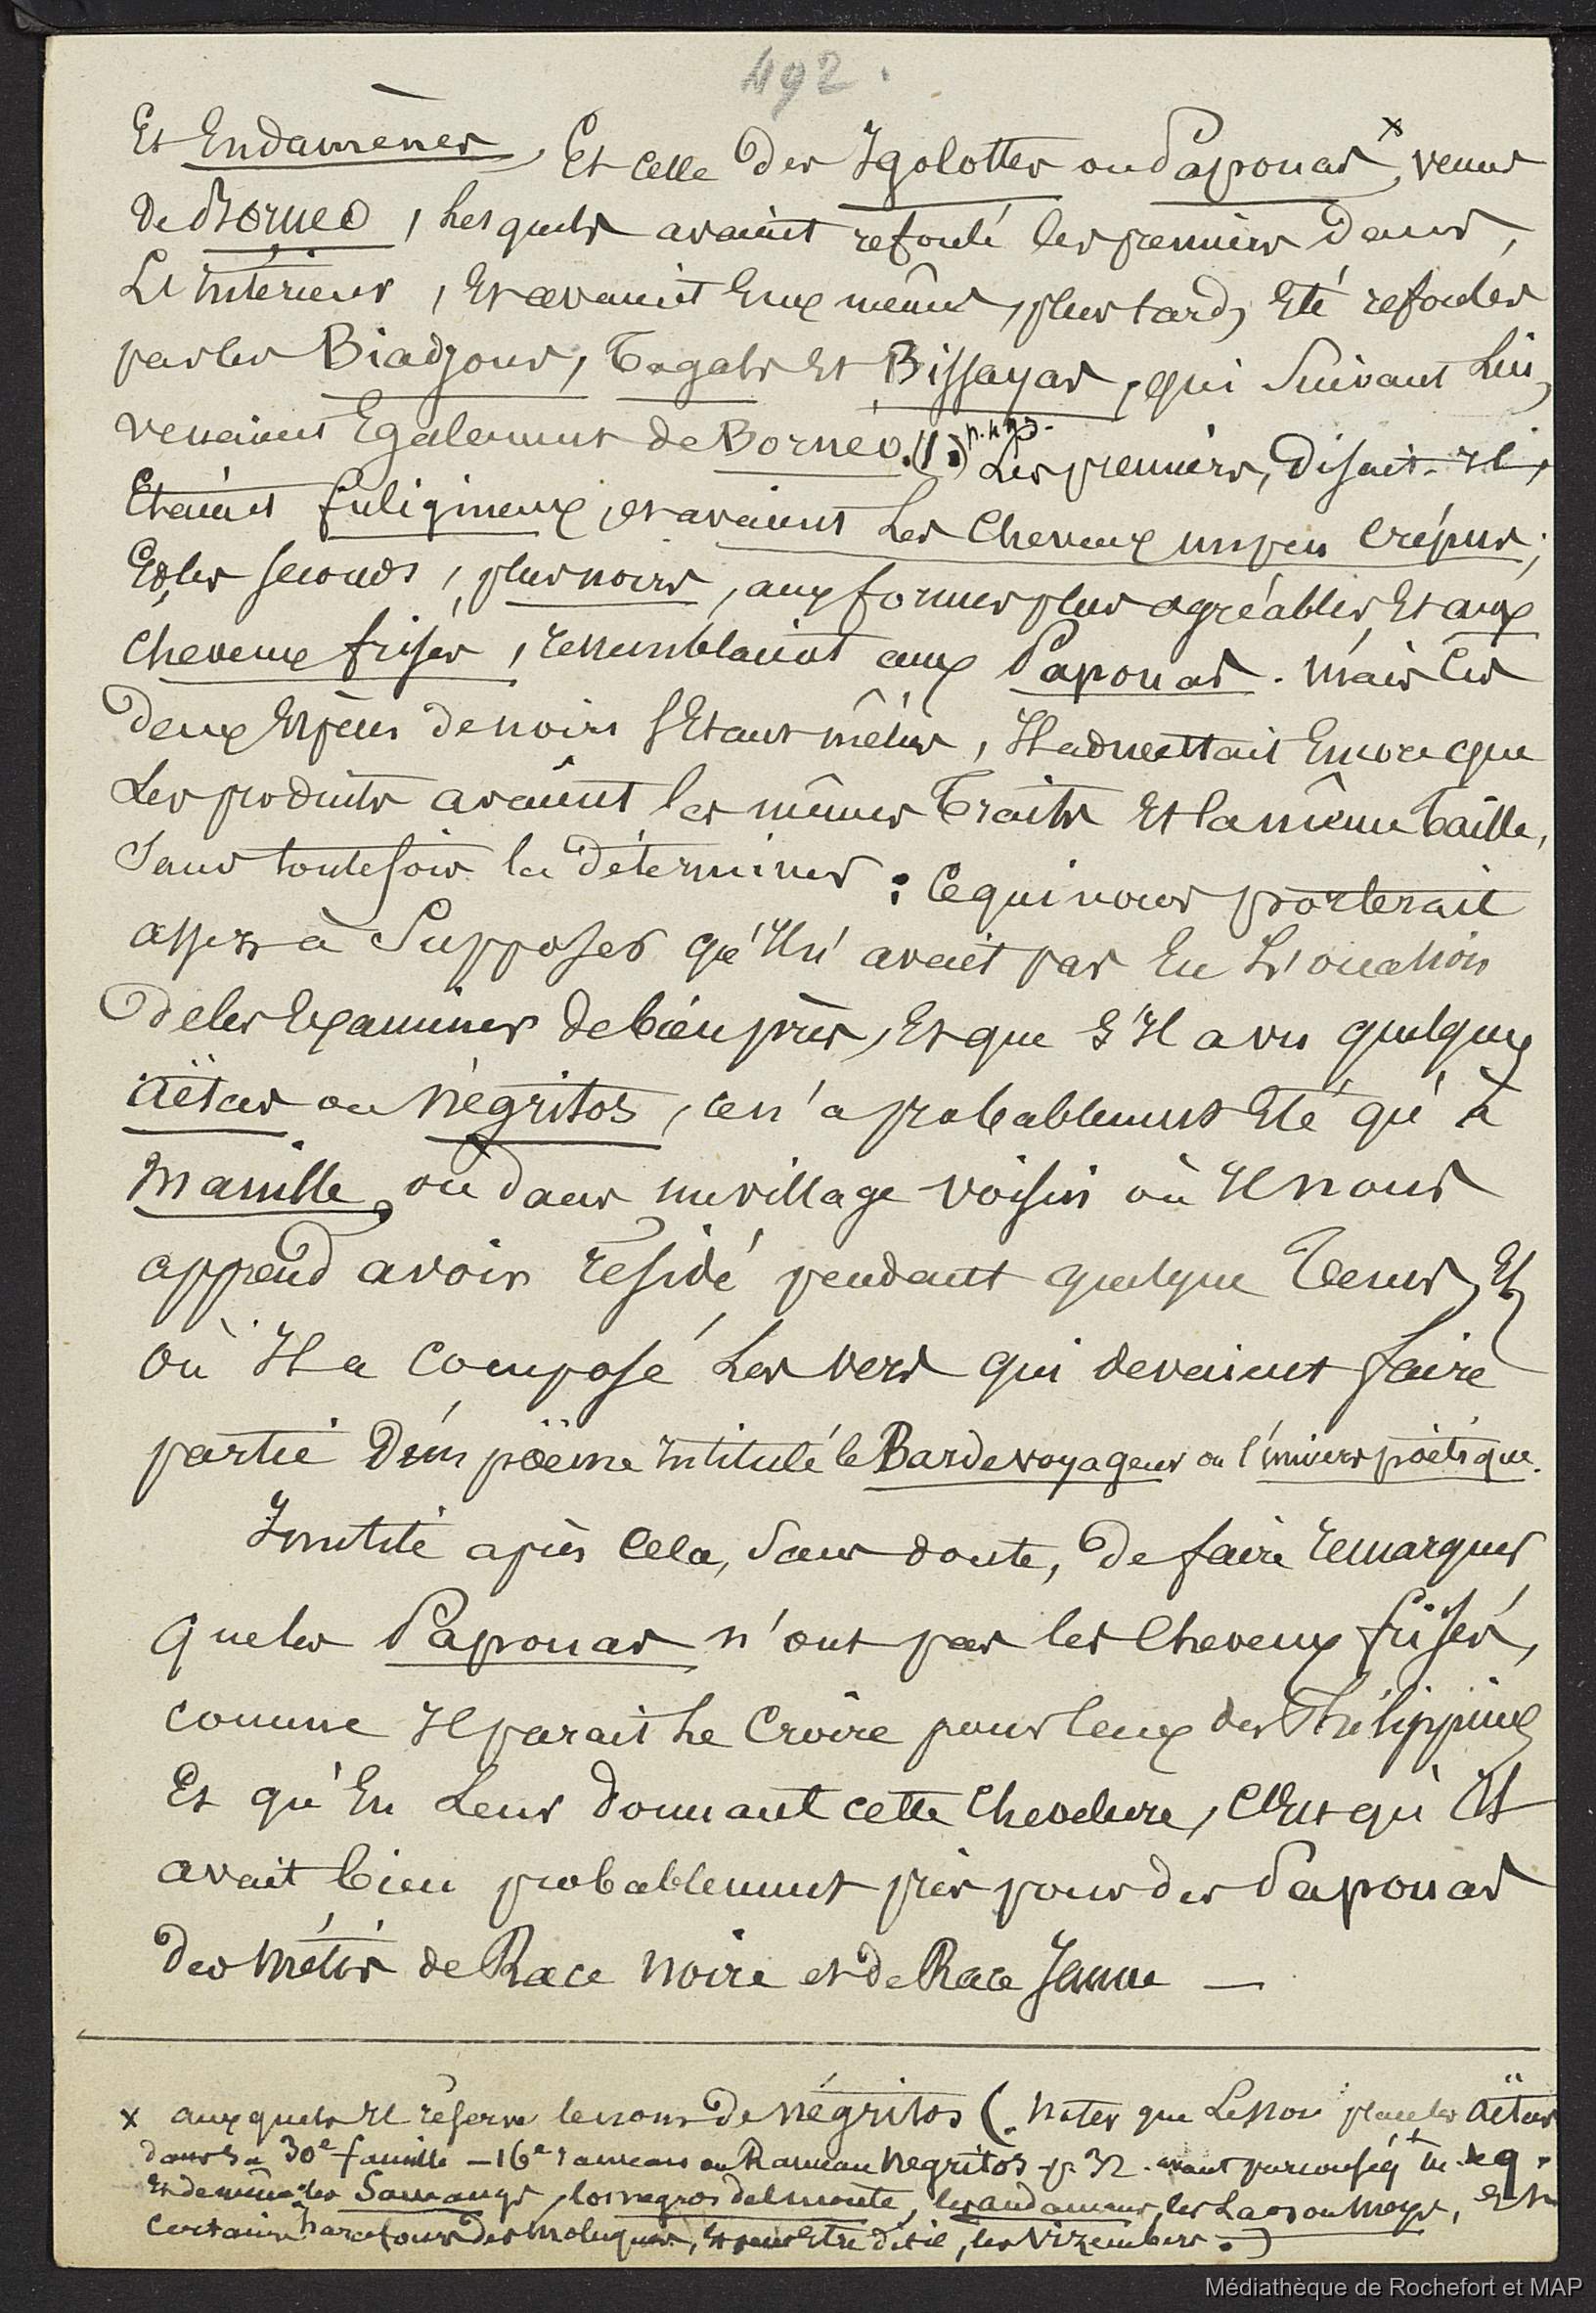 492.
Et Endamènes, Et celle des Igolottes ou Papouas x, venus
de Bornéo, lesquels avaient refoulé les premiers dans,
L'intérieur, Et avaient Eux mêmes, plus tard, Eté refoulés
par les Biadjous, Tagals Et Bissayas, qui suivant Lui,
venaient Egalement de Bornéo. (1.) p. 493. Les premiers, disait-il,
Etaient fuligineux, et avaient Les Cheveux un peu Crépus;
Et, les seconds, plus noirs, aux formes plus agréables, Et aux
Cheveux frisés, ressemblaient aux Papouas. Mais Ces
deux Espèces de noirs s'Etant mêlés, Il admettait Encore que
Les produits avaient les mêmes Traits Et la même Taille,
Sans toutefois la déterminer: Ce qui nous porterait
assez à Supposer qu'Il n'avait pas Eu L'occasion
de les Examiner de bien près, Et que S'Il a vu quelques
Aëtas ou Négritos, ce n'a probablement Eté qu'à
Manille, ou dans un village voisin où Il nous
apprend avoir résidé pendant quelque Tems, Et
où Il a Composé Les vers qui devaient faire
partie d'un poëme Intitulé le Barde voyageur ou l'univers poétique.
Inutile après Cela, Sans doute, de faire remarquer
que les Papouas n'ont pas les Cheveux frisés,
comme Il parait Le Croire pour Ceux des Philippines
Et qu'En Leur donnant cette Chevelure, C'Est qu'Il
avait bien probablement pris pour des Papouas
des métis de Race noire et de Race Jaune —
x auxquels Il réserve le nom de Négritos (. Noter que Lesson place les Aëtas
dans sa 30e famille – 16e rameau ou Rameau Négritos – p. 32. par conséq
Et de même les Samangs, los negros del monte, les andamens, les Laos ou Moys, Et
Certains harafours des Moluques, Et peut Etre dit-il, les Vizembers.)
Médiathèque de Rochefort et MAP